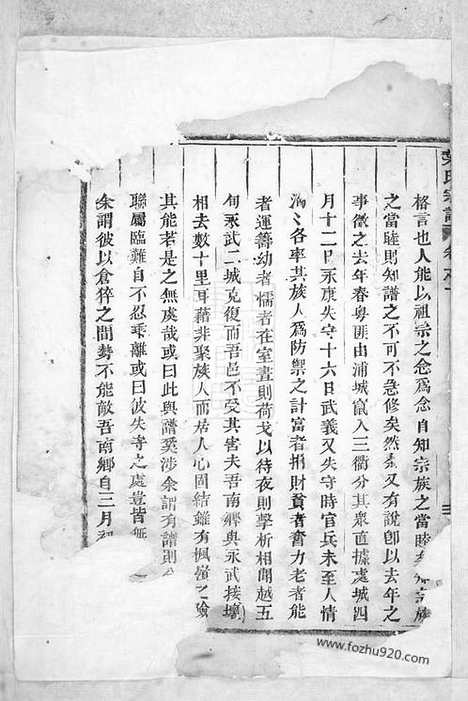 葉氏宗譜 卷之一
格言也人能以祖宗之念爲念自知宗族之當睦矣知宗族
之當睦則知譜之不可不急修矣然余又有說卽以去年之
事徵之去年春粵匪由浦城竄入三衢分其衆直據處城四
月十二日永康失守十六日武義又失守時官兵未至人情
洶洶各率其族人爲防禦之計富者捐財貧者奮力老者能
者運籌幼者懦者在室晝則荷戈以待夜則擊柝相聞越五
旬永武二城克復而吾邑不受其害夫吾南鄉與永武接壤
相去數十里耳藉非聚族人而居人心固結雖有楓嶺之險
其能若是之無虞哉或曰此與譜奚涉余謂有譜則
聯屬臨難自不忍乖離或曰彼失守之處豈皆無
余謂彼以倉猝之間勢不能敵吾南鄉自三月初
www.fozhu920.com